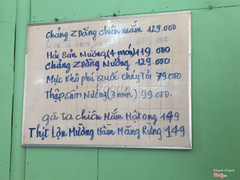 Chảng Z Dảng chiên mắm 129.000
Hải Sản Nướng (4 món) 119.000
Chảng Z Dảng Nướng 129.000
Mực khô phú Quốc cháy tỏi 79.000
Thập Cẩm Nướng (3 món) 99.000
gà ta chiên Mắm Mật ong 149
Thịt Lợn Mường Hầm Măng Rừng 149